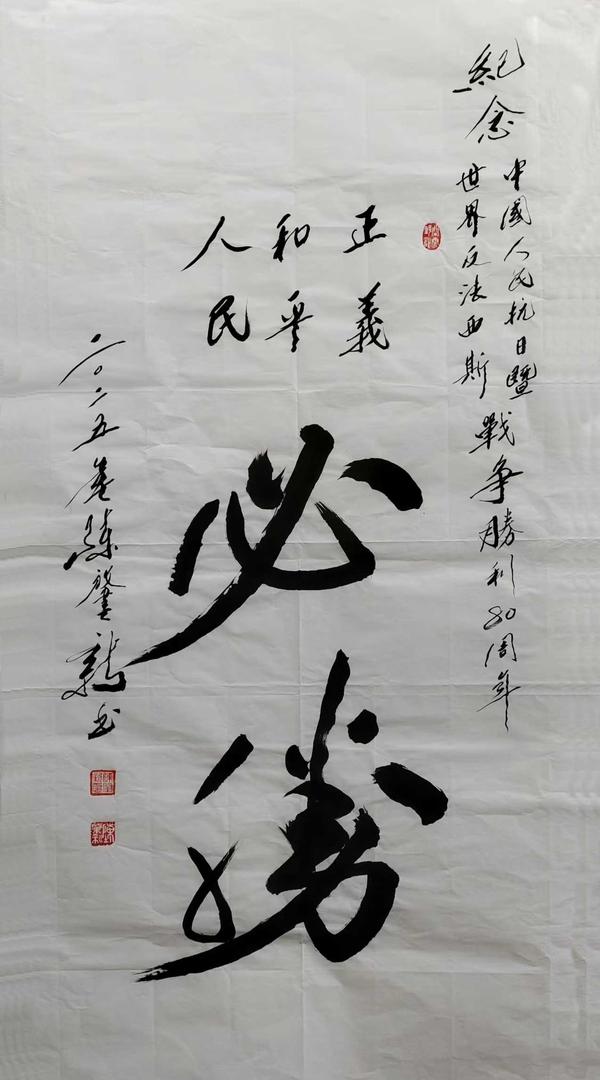 紀念
中國人民抗日暨
世界反法西斯
戰争勝利80周年
正義
和平
人民
必勝
二〇二五
书